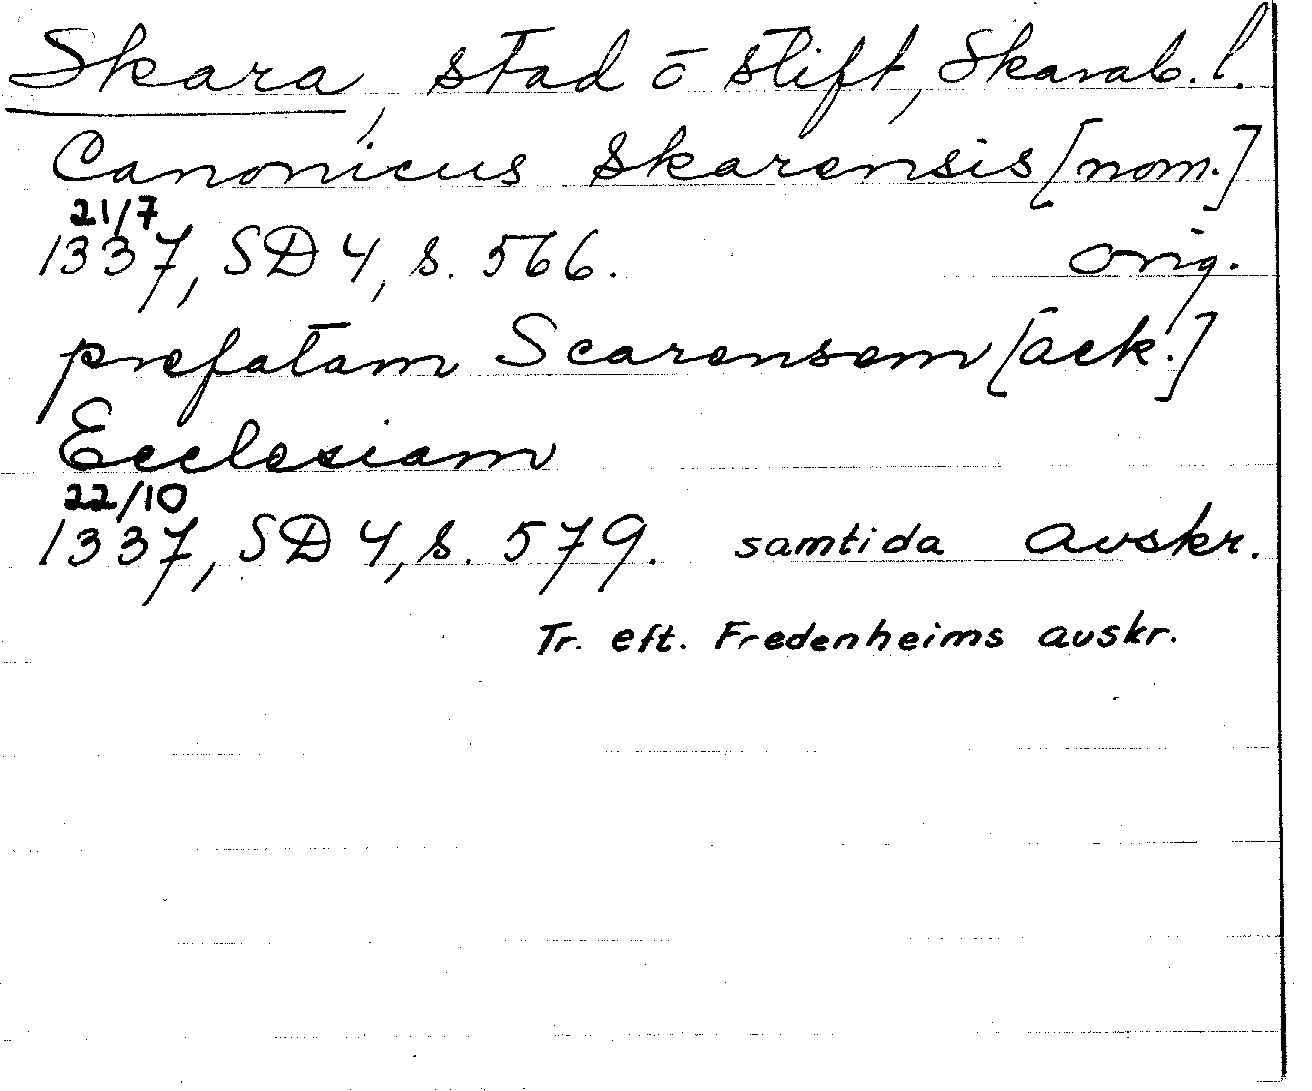 Skara, stad o stift, Skarab. l.
Canonicus Skarensis [nom.]
21/7
1337, SD 4, s. 566. orig.
prefatam Scarensem [ack.]
Ecclesiam
22/10
1337, SD 4, s. 579. samtida avskr.
Tr. eft. Fredenheims avskr.